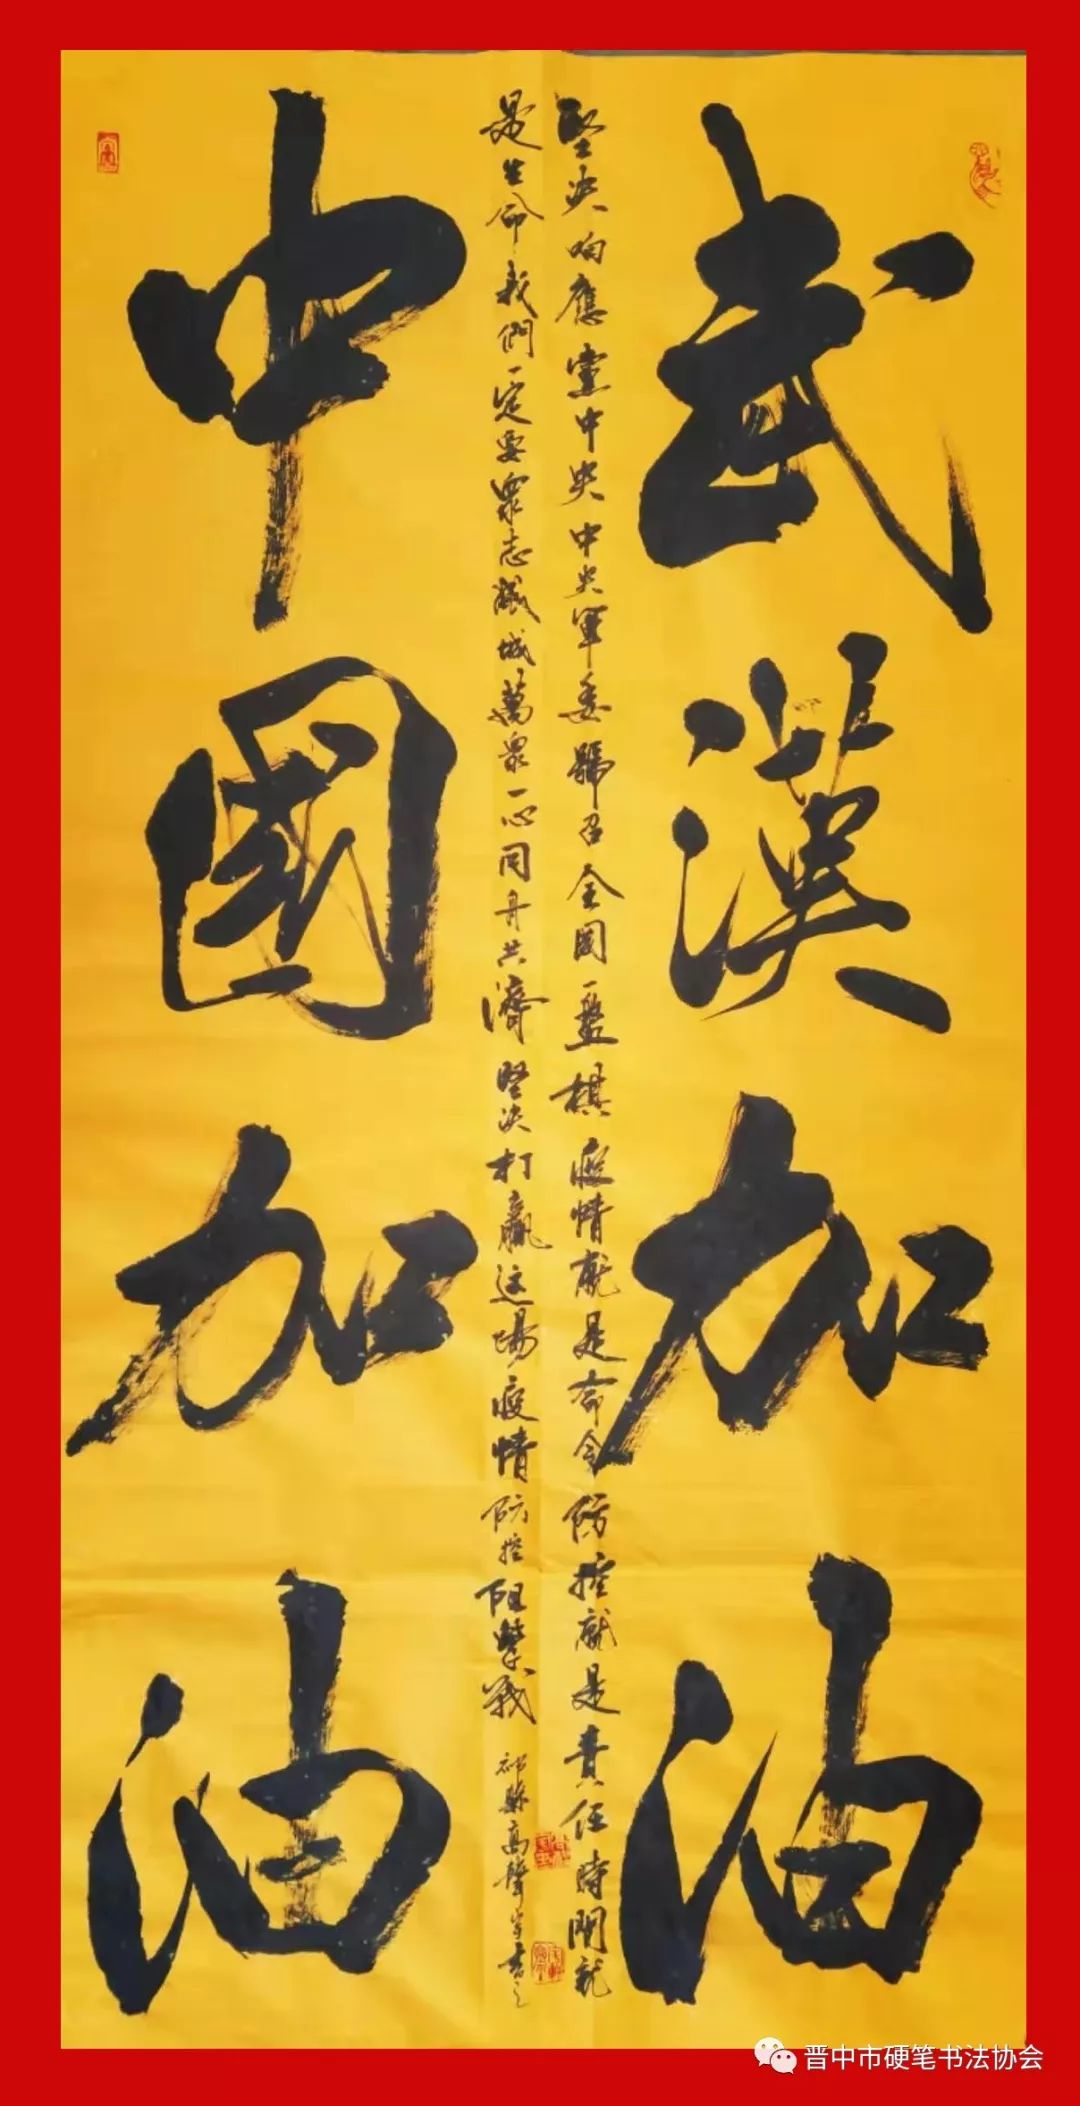 武漢加油
堅决响應黨中央中央軍委號召全國一盤棋疫情就是命令防控就是責任時間就
是生命我們一定要衆志誠城萬衆一心同舟共濟堅决打贏这場疫情防控阻擊戰
祁縣高
書之
中國加油
晋中市硬笔书法协会